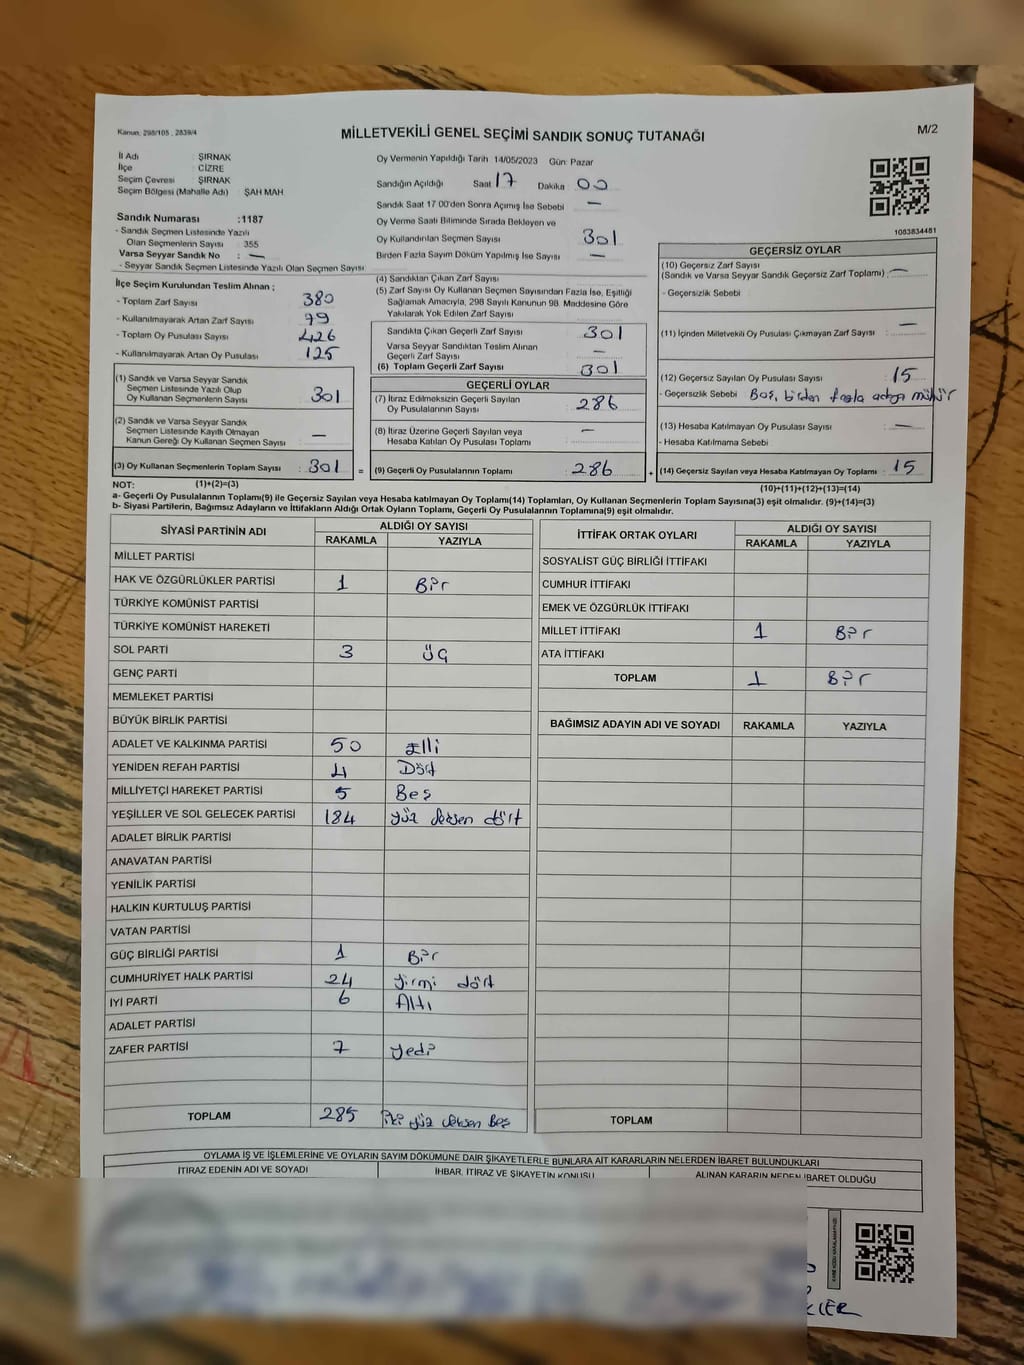 Kanun: 298/105 , 2839/4
MİLLETVEKİLİ GENEL SEÇİMİ SANDIK SONUÇ TUTANAĞI
M/2
İl Adı : ŞIRNAK
İlçe : CİZRE
Seçim Çevresi : ŞIRNAK
Seçim Bölgesi (Mahalle Adı) ŞAH MAH
Sandık Numarası :1187
- Sandık Seçmen Listesinde Yazılı
Olan Seçmenlerin Sayısı : 355
Varsa Seyyar Sandık No : —
- Seyyar Sandık Seçmen Listesinde Yazılı Olan Seçmen Sayısı
İlçe Seçim Kurulundan Teslim Alınan ;
- Toplam Zarf Sayısı : 380
- Kullanılmayarak Artan Zarf Sayısı : 79
- Toplam Oy Pusulası : 426
- Kullanılmayarak Artan Oy Pusulası : 125
(1) Sandık ve Varsa Seyyar Sandık
Seçmen Listesinde Yazılı Olup
Oy Kullanan Seçmenlerin Sayısı : 301
(2) Sandık ve Varsa Seyyar Sandık
Seçmen Listesinde Kayıtlı Olmayan
Kanun Gereği Oy Kullanan Seçmen Sayısı : —
(3) Oy Kullanan Seçmenlerin Toplam Sayısı : 301 =
Oy Vermenin Yapıldığı Tarih 14/05/2023 Gün: Pazar
Sandığın Açıldığı Saat 17 Dakika 00
Sandık Saat 17 00'den Sonra Açımış İse Sebebi —
Oy Verme Saati Bitiminde Sırada Bekleyen ve
Oy Kullandırılan Seçmen Sayısı 301
Birden Fazla Sayım Döküm Yapılmış İse Sayısı —
(4) Sandıktan Çıkan Zarf Sayısı
(5) Zarf Sayısı Oy Kullanan Seçmen Sayısından Fazla İse, Eşitliği
Sağlamak Amacıyla, 298 Sayılı Kanunun 98. Maddesine Göre
Yakılarak Yok Edilen Zarf Sayısı
Sandıkta Çıkan Geçerli Zarf Sayısı 301
Varsa Seyyar Sandıktan Teslim Alınan
Geçerli Zarf Sayısı —
(6) Toplam Geçerli Zarf Sayısı 301
GEÇERLİ OYLAR
(7) İtiraz Edilmeksizin Geçerli Sayılan
Oy Pusulalarının Sayısı : 286
(8) İtiraz Üzerine Geçerli Sayılan veya
Hesaba Katılan Oy Pusulası Toplamı : —
(9) Geçerli Oy Pusulalarının Toplamı : 286 +
1083834481
GEÇERSİZ OYLAR
(10) Geçersiz Zarf Sayısı
(Sandık ve Varsa Seyyar Sandık Geçersiz Zarf Toplamı) : —
- Geçersizlik Sebebi :
(11) İçinden Milletvekili Oy Pusulası Çıkmayan Zarf Sayısı : —
(12) Geçersiz Sayılan Oy Pusulası Sayısı : 15
- Geçersizlik Sebebi : Boş, birden fazla adaya mühür
(13) Hesaba Katılmayan Oy Pusulası Sayısı : —
- Hesaba Katılmama Sebebi :
(14) Geçersiz Sayılan veya Hesaba Katılmayan Oy Toplamı : 15
NOT: (1)+(2)=(3)
(10)+(11)+(12)+(13)=(14)
a- Geçerli Oy Pusulalarının Toplamı(9) ile Geçersiz Sayılan veya Hesaba katılmayan Oy Toplamı(14) Toplamları, Oy Kullanan Seçmenlerin Toplam Sayısına(3) eşit olmalıdır. (9)+(14)=(3)
b- Siyasi Partilerin, Bağımsız Adayların ve İttifakların Aldığı Ortak Oyların Toplamı, Geçerli Oy Pusulalarının Toplamına(9) eşit olmalıdır.
SİYASİ PARTİNİN ADI ALDIĞI OY SAYISI
RAKAMLA YAZIYLA
MİLLET PARTİSİ
HAK VE ÖZGÜRLÜKLER PARTİSİ 1 Bir
TÜRKİYE KOMÜNİST PARTİSİ
TÜRKİYE KOMÜNİST HAREKETİ
SOL PARTİ 3 üç
GENÇ PARTİ
MEMLEKET PARTİSİ
BÜYÜK BİRLİK PARTİSİ
ADALET VE KALKINMA PARTİSİ 50 Elli
YENİDEN REFAH PARTİSİ 4 Dört
MİLLİYETÇİ HAREKET PARTİSİ 5 Beş
YEŞİLLER VE SOL GELECEK PARTİSİ 184 yüz seksen dört
ADALET BİRLİK PARTİSİ
ANAVATAN PARTİSİ
YENİLİK PARTİSİ
HALKIN KURTULUŞ PARTİSİ
VATAN PARTİSİ
GÜÇ BİRLİĞİ PARTİSİ 1 Bir
CUMHURİYET HALK PARTİSİ 24 yirmi dört
İYİ PARTİ 6 Altı
ADALET PARTİSİ
ZAFER PARTİSİ 7 yedi
TOPLAM 285 iki yüz seksen Beş
İTTİFAK ORTAK OYLARI ALDIĞI OY SAYISI
RAKAMLA YAZIYLA
SOSYALİST GÜÇ BİRLİĞİ İTTİFAKI
CUMHUR İTTİFAKI
EMEK VE ÖZGÜRLÜK İTTİFAKI
MİLLET İTTİFAKI 1 Bir
ATA İTTİFAKI
TOPLAM 1 Bir
BAĞIMSIZ ADAYIN ADI VE SOYADI RAKAMLA YAZIYLA
TOPLAM
OYLAMA İŞ VE İŞLEMLERİNE VE OYLARIN SAYIM DÖKÜMÜNE DAİR ŞİKAYETLERLE BUNLARA AİT KARARLARIN NELERDEN İBARET BULUNDUKLARI
İTİRAZ EDENİN ADI VE SOYADI İHBAR, İTİRAZ VE ŞİKAYETİN KONUSU ALINAN KARARIN NEDEN İBARET OLDUĞU